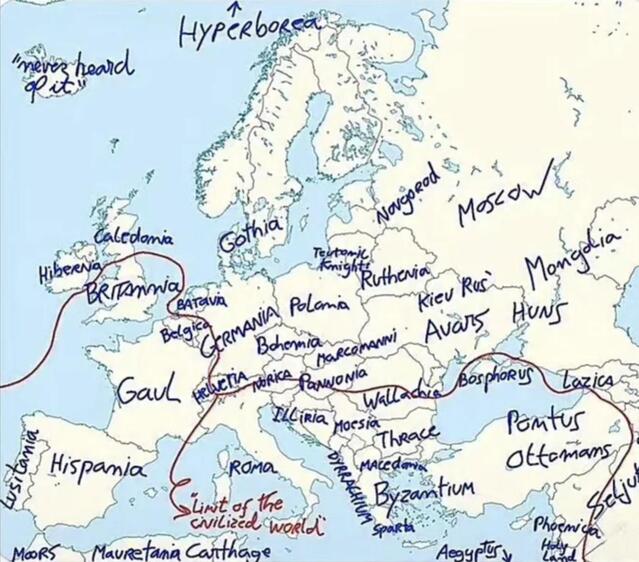 HYPERBOREA
"never heard
of it"
Novgorod
MOSCOW
Caledonia
Gothia
Hibernia
BRITANNIA
Teutonic
Knights
Ruthenia
Mongolia
BATAVIA
Belgica
GERMANIA
Polonia
Kiev Rus'
AVARS
HUNS
Bohemia
MARCOMANNI
Gaul
HELVETIA
NORICA
Pannonia
Wallachia
BOSPHORUS
LAZICA
ILLIRIA
Moesia
Thrace
Pontus
Ottomans
Lusitania
Hispania
ROMA
DYRRACHIUM
MACedonia
Byzantium
Seljuk
"Limit of the
civilized world"
Sparta
Phoenicia
Holy
Land
MOORS
Mauretania
Carthage
Aegyptus